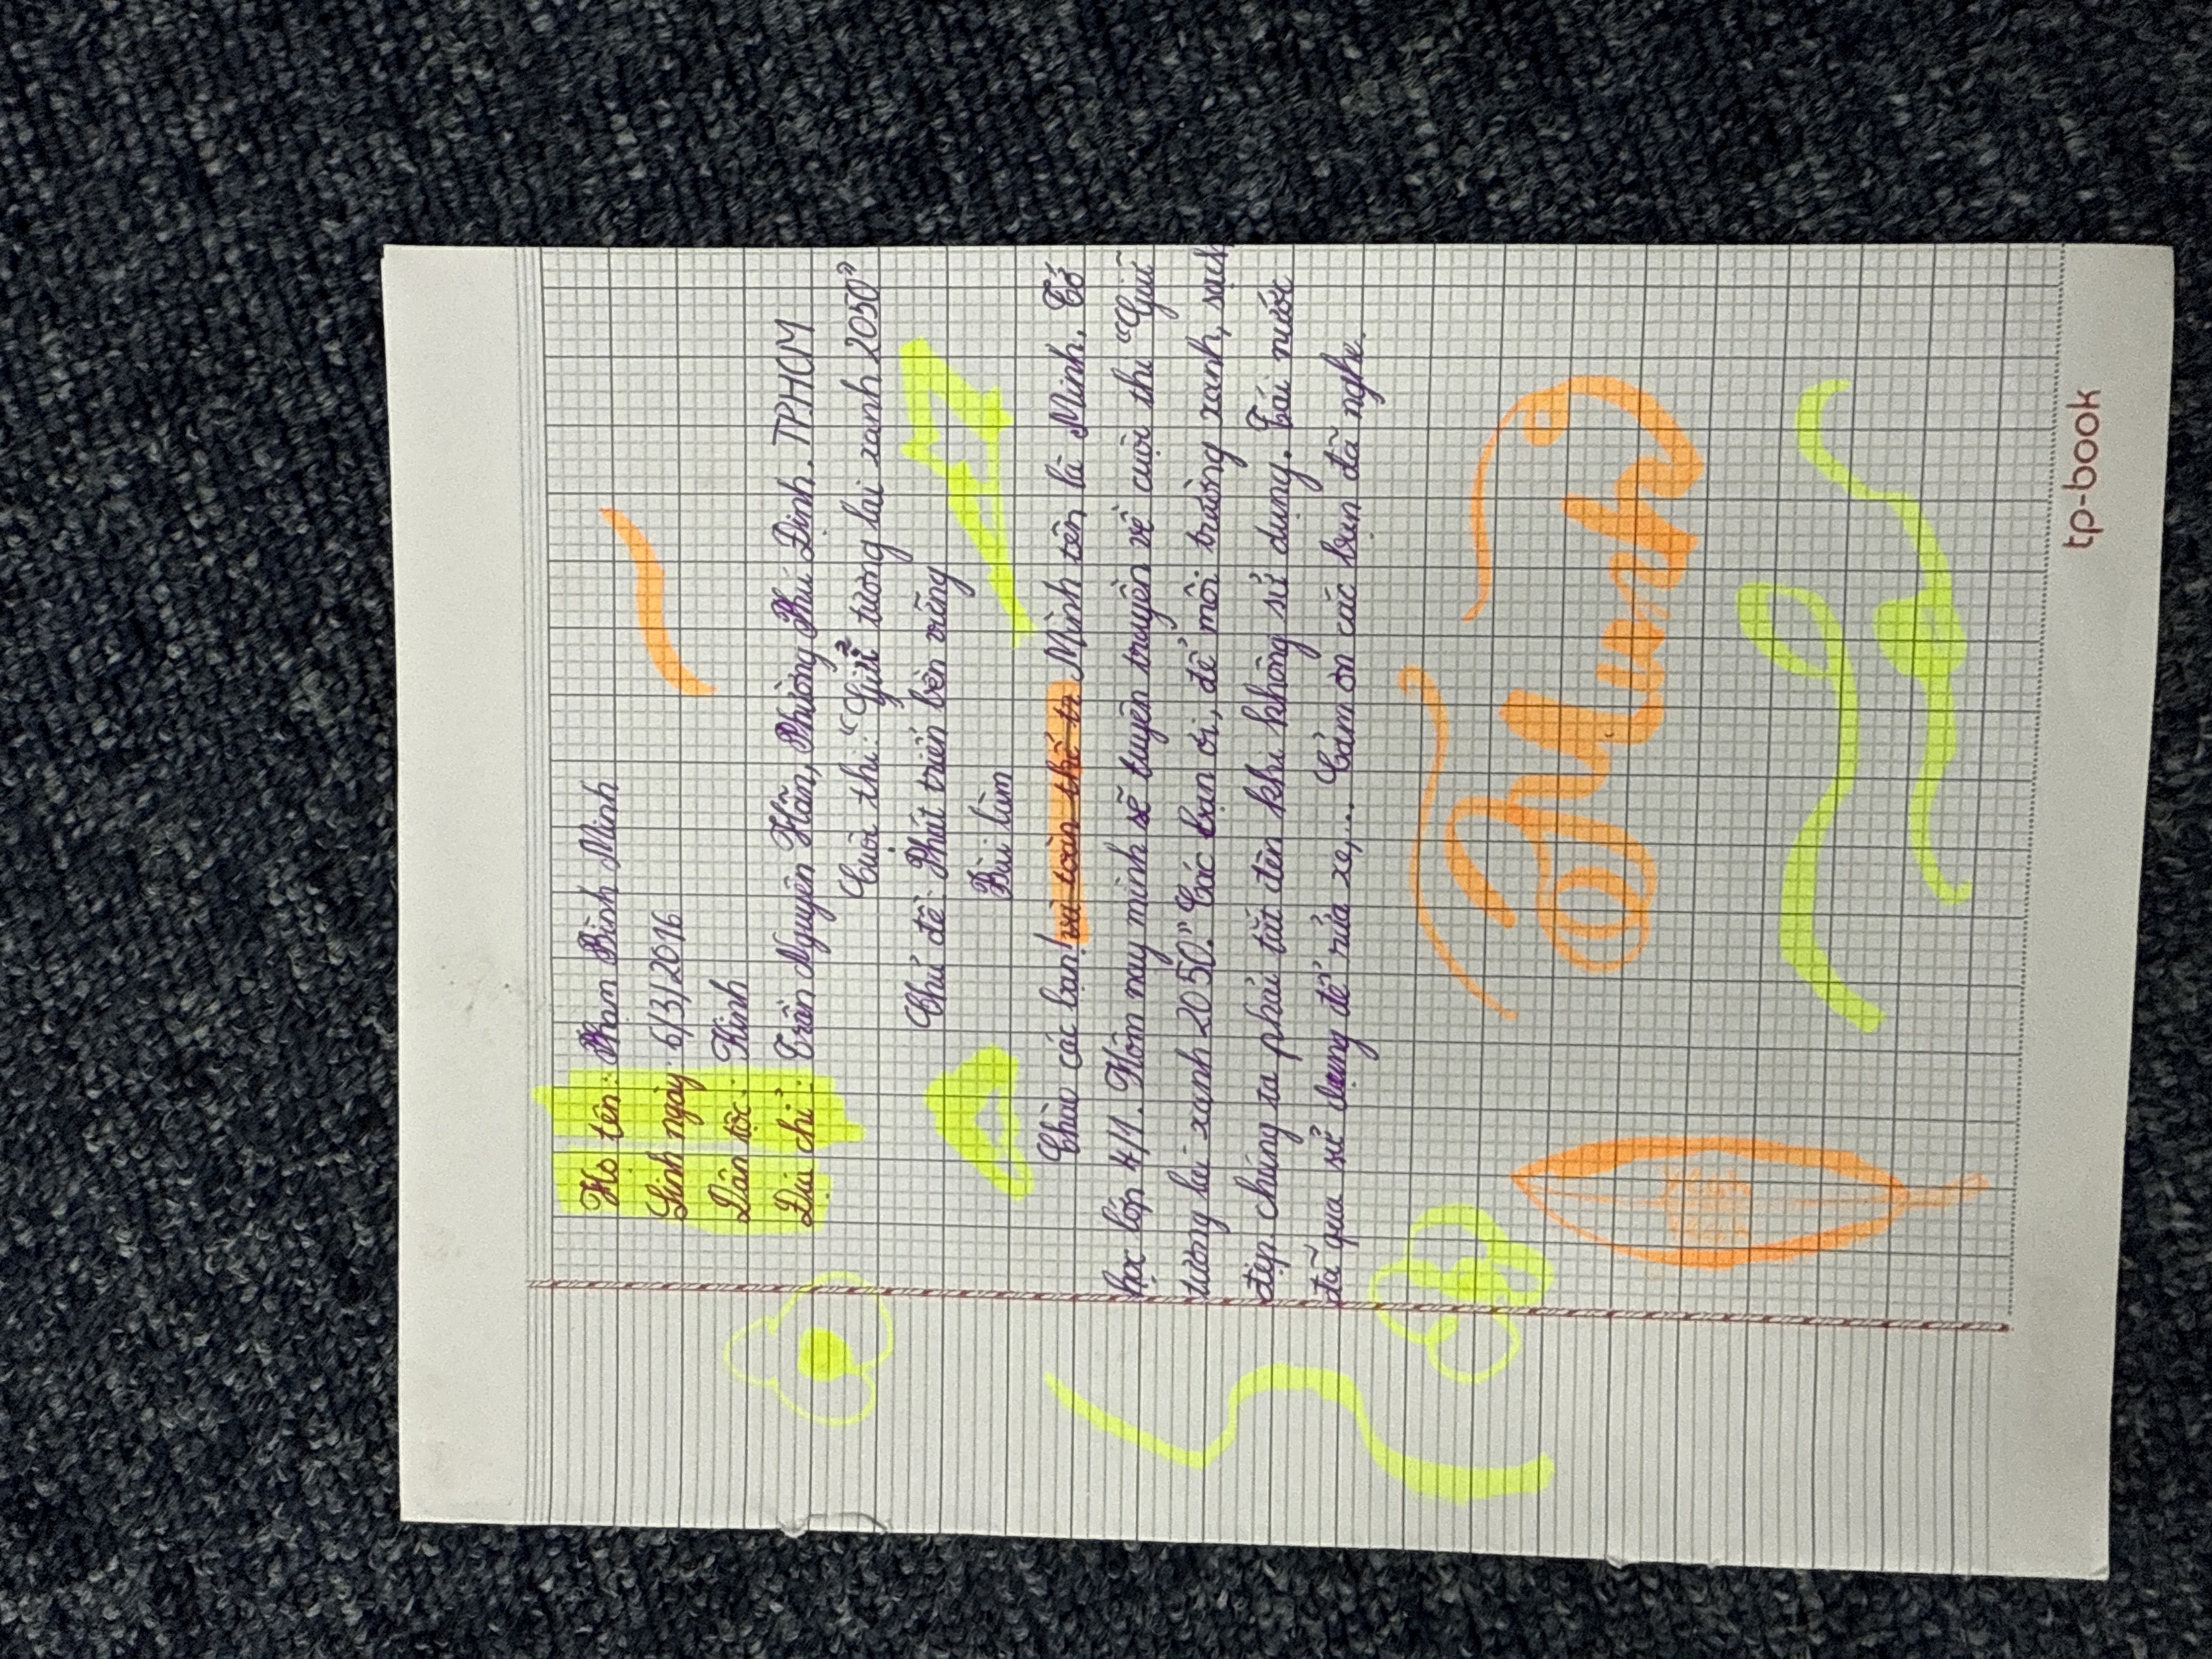 Họ tên: Phạm Bình Minh
Sinh ngày: 6/3/2016
Dân tộc: Kinh
Địa chỉ: Trần Nguyên Hãn, Phường Phú Định. TPHCM
Cuộc thi: "Giữ tương lai xanh 2050"
Chủ đề: Phát triển bền vững
Bài làm
Chào các bạn! và toàn thể tr Mình tên là Minh. Tớ
học lớp 4/1. Hôm nay mình sẽ tuyên truyền về cuộc thi "Giữ
tương lai xanh 2050". Các bạn ơi, để môi trường xanh, sạch
đẹp chúng ta phải tắt đèn khi không sử dụng. Cái nước
đã qua sử dụng để rửa xe,... Cảm ơn các bạn đã nghe.
Minh
tp-book